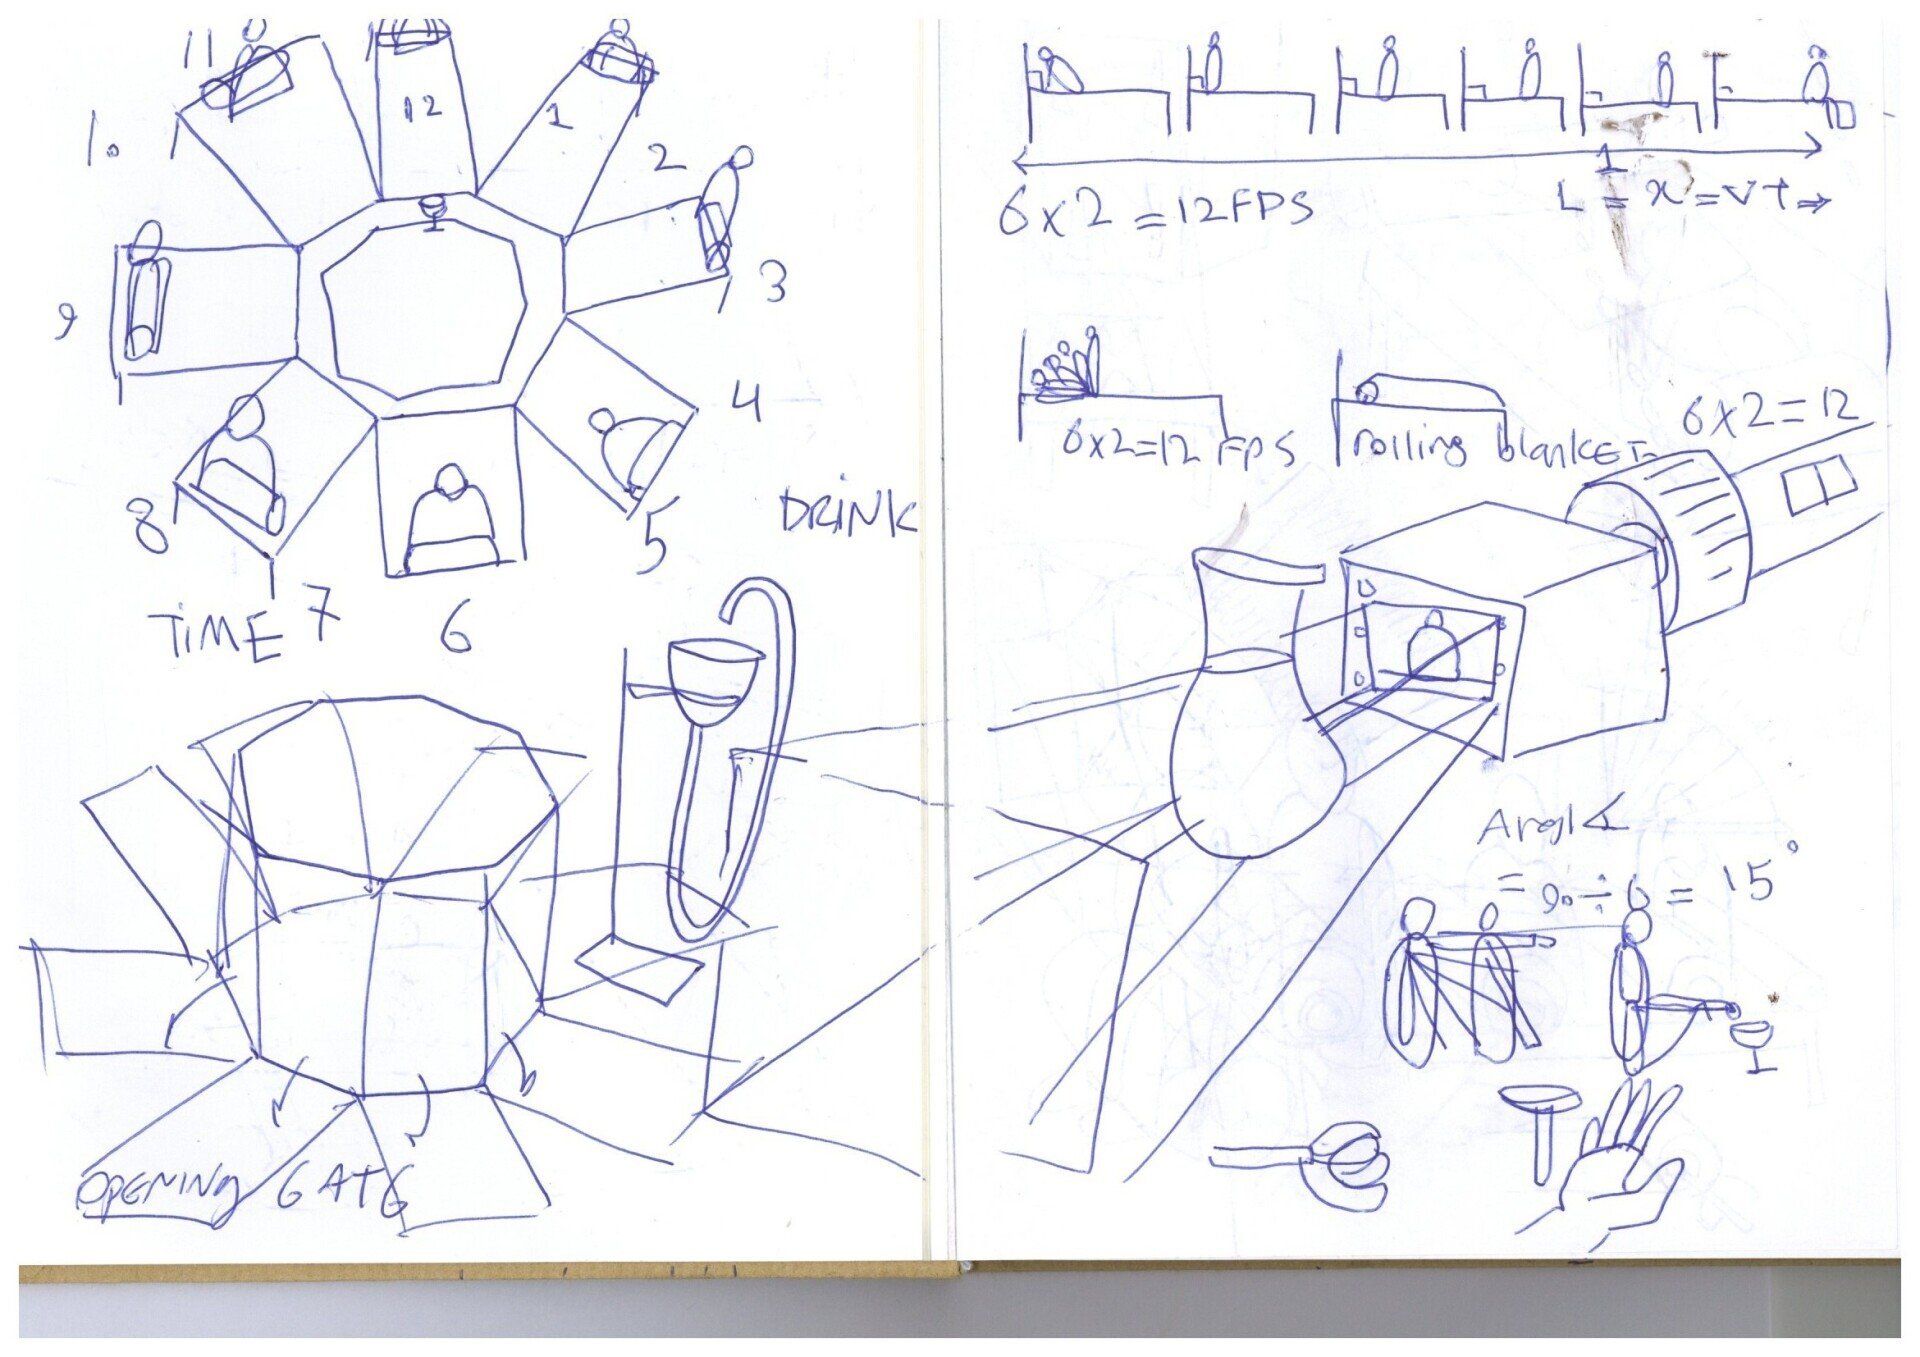 11
12
1
10
2
3
9
4
8
5
DRINK
TiME
7
6
OPENING GATG
6x2 = 12FPS
L = x = vt ⇒
6x2=12 FPS
rolling blanket
6x2=12
Angle
= 90 ÷ 6 = 15°